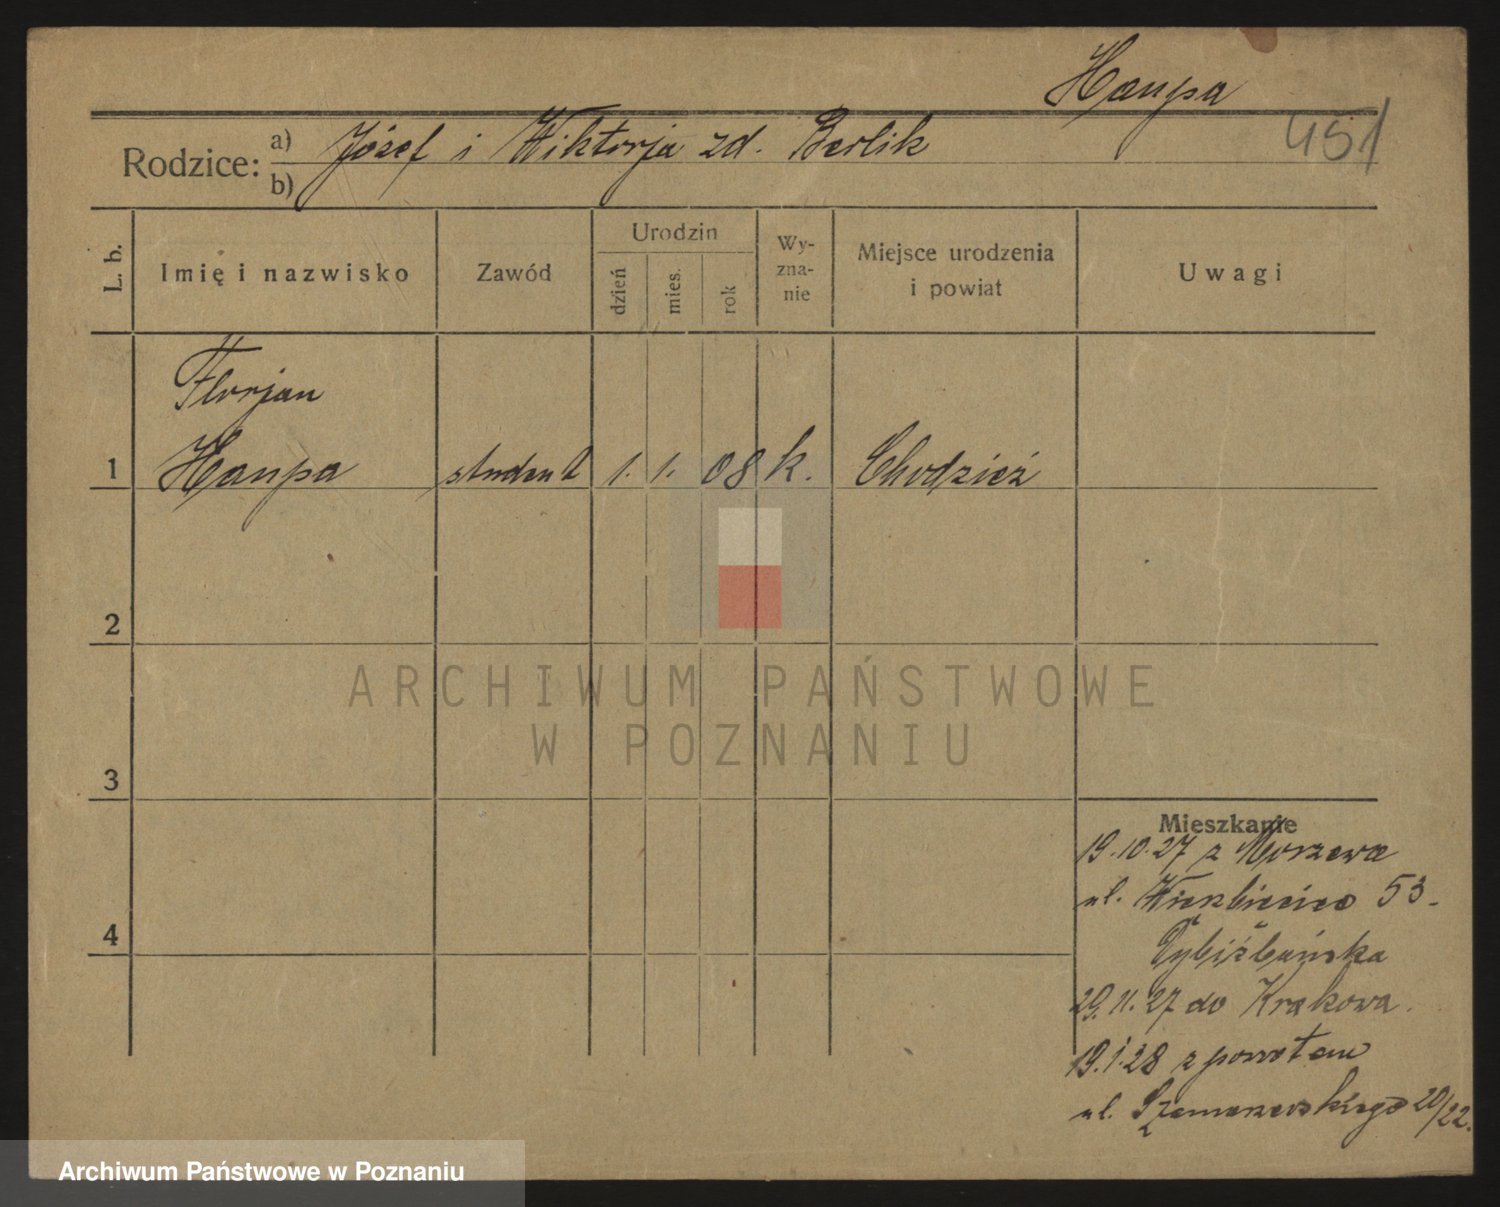 Haupa
451
Rodzice: a) Józef i Wiktorja zd. Berlik
b)
L. b. Imię i nazwisko Zawód Urodzin dzień mies. rok Wy-zna-nie Miejsce urodzenia i powiat Uwagi
Florjan
1 Haupa student 1. 1. 08 k. Chodzież
2
3
4
Mieszkanie
19.10.27 z Morzewa
ul. 53.
29.11.27 do Krakowa.
19.1.28 z powrotem
ul. Szamarzewskiego 20/22.
ARCHIWUM PAŃSTWOWE
W POZNANIU
Archiwum Państwowe w Poznaniu